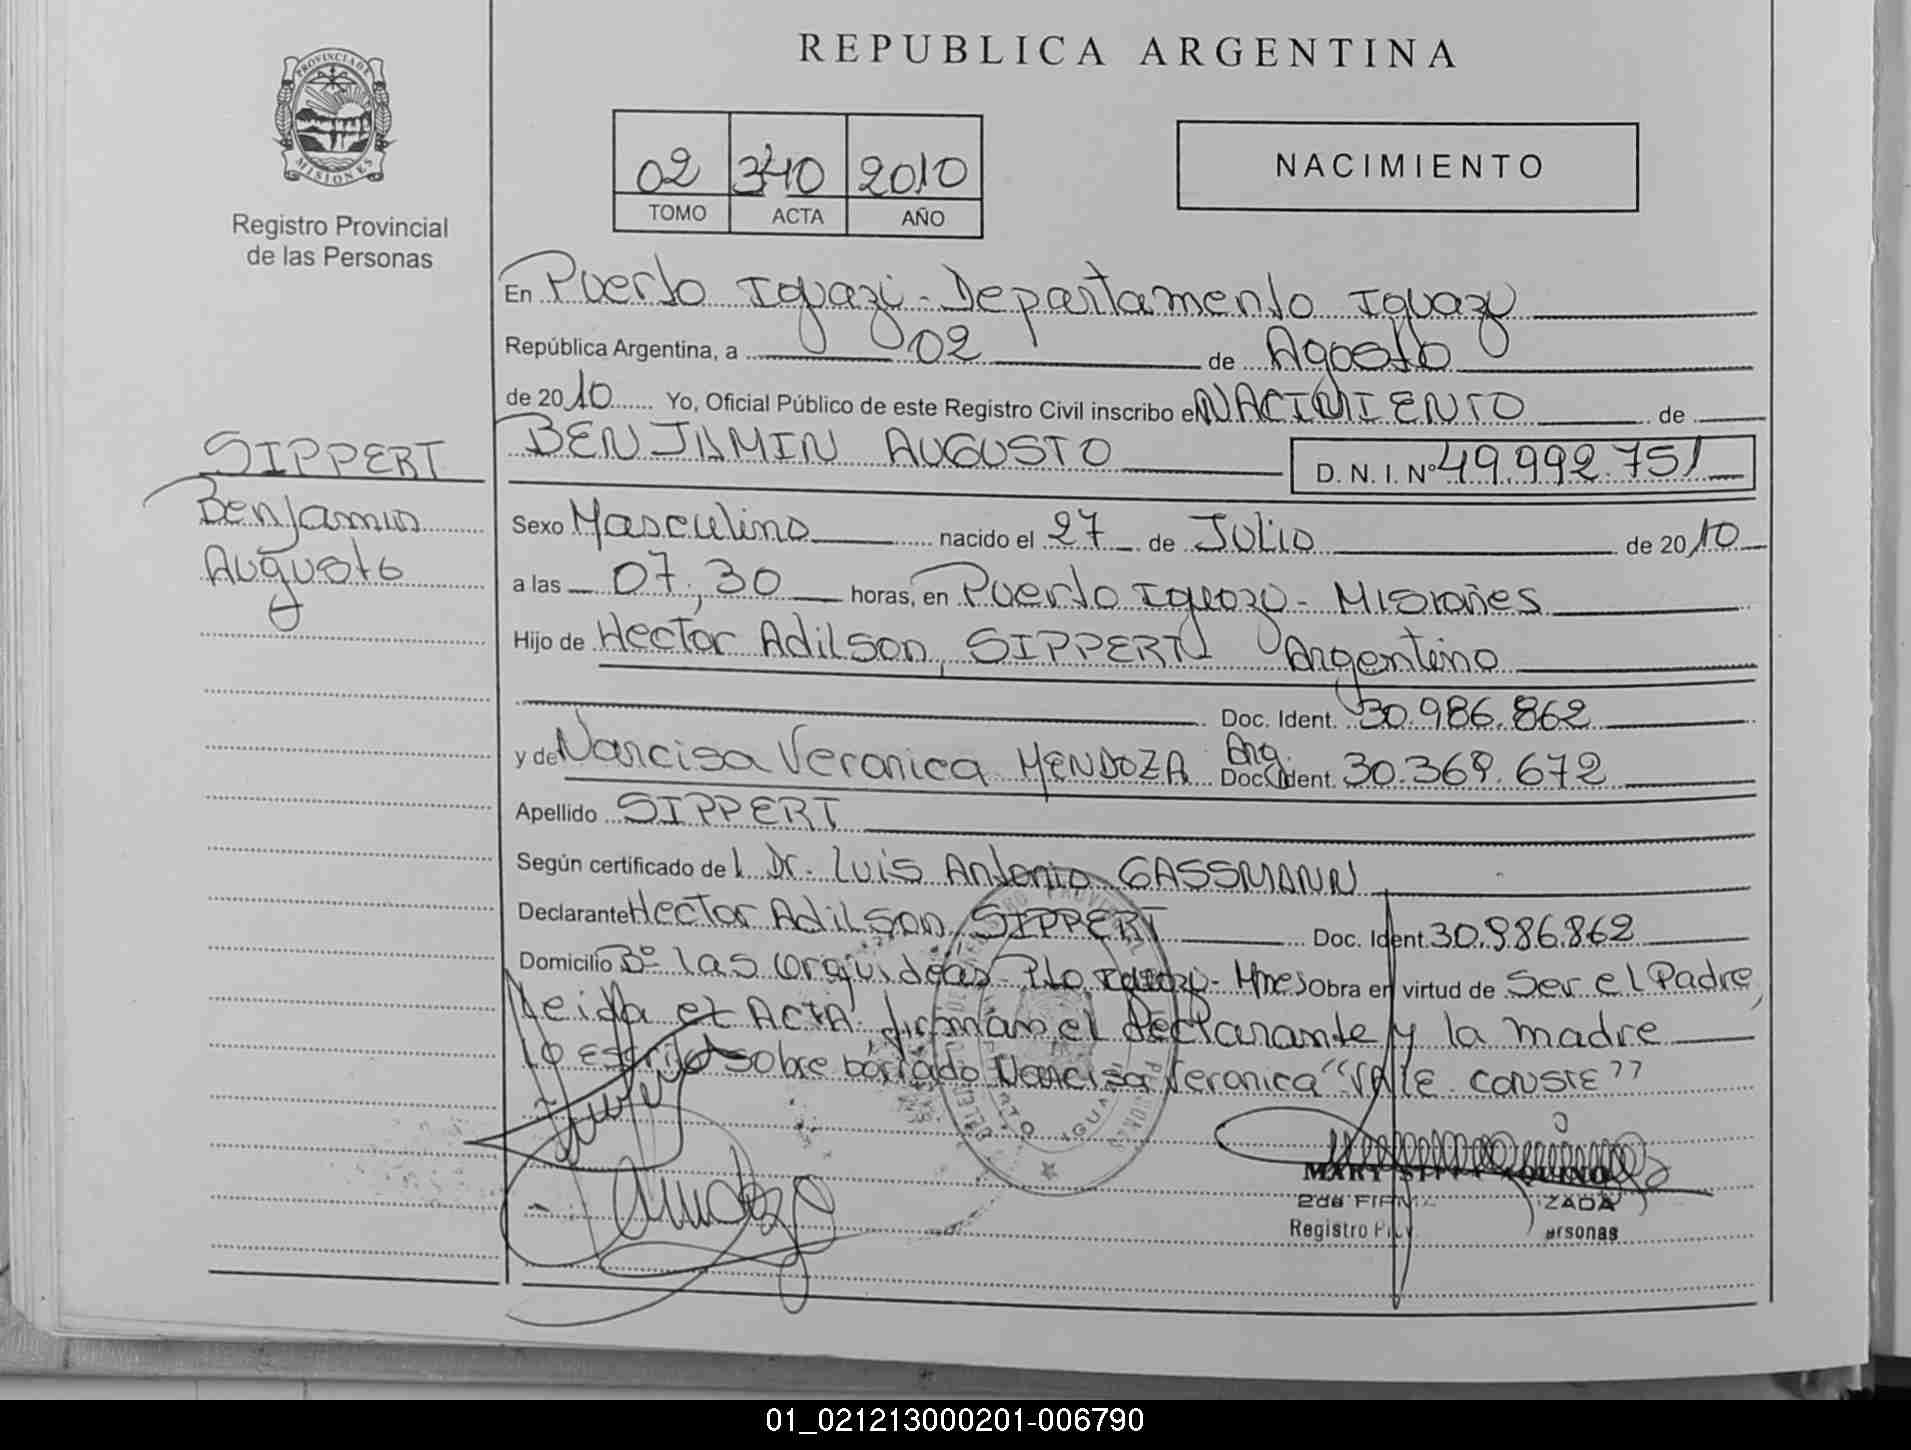 REPUBLICA ARGENTINA
PROVINCIA DE
MISIONES
Registro Provincial
de las Personas
02 340 2010
TOMO ACTA AÑO
NACIMIENTO
En Puerto Iguazú - Departamento Iguazú
República Argentina, a 02 de Agosto
de 2010 Yo, Oficial Público de este Registro Civil inscribo el NACIMIENTO de
SIPPERT
Benjamin
Augusto
BENJAMIN AUGUSTO D. N. I. Nº 49.992.751
Sexo Masculino nacido el 27 de Julio de 2010
a las 07,30 horas, en Puerto Iguazú - Misiones
Hijo de Hector Adilson, SIPPERT Argentino
Doc. Ident. 30.986.862
y de Narcisa Veronica MENDOZA Arg. Doc. Ident. 30.369.672
Apellido SIPPERT
Según certificado de l Dr. Luis Antonio GASSMANN
Declarante Hector Adilson SIPPERT Doc. Ident. 30.986.862
Domicilio Bº las orquideas - Pto Iguazú - Mnes Obra en virtud de Ser el Padre,
leida el ACTA, firman el declarante y la madre
lo escrito sobre borrado Narcisa Veronica "VALE CONSTE"
MARY
2da FIRMA
Registro